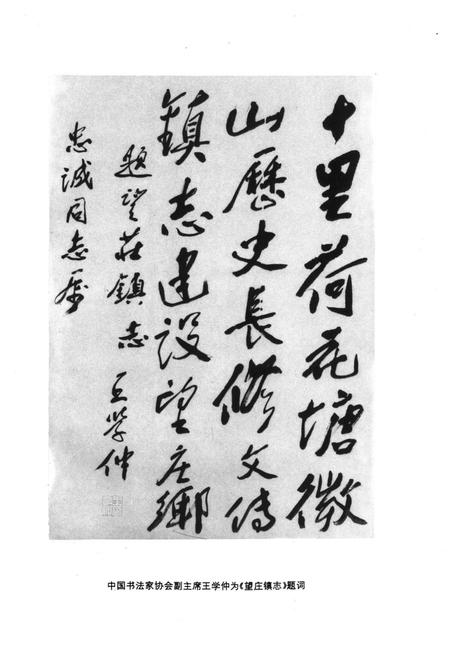 十里荷花塘微
山歷史長修文傳
鎮志建設望庄鄉
題望莊鎮志
王学仲
忠诚同志属
中国书法家协会副主席王学仲为《望庄镇志》题词